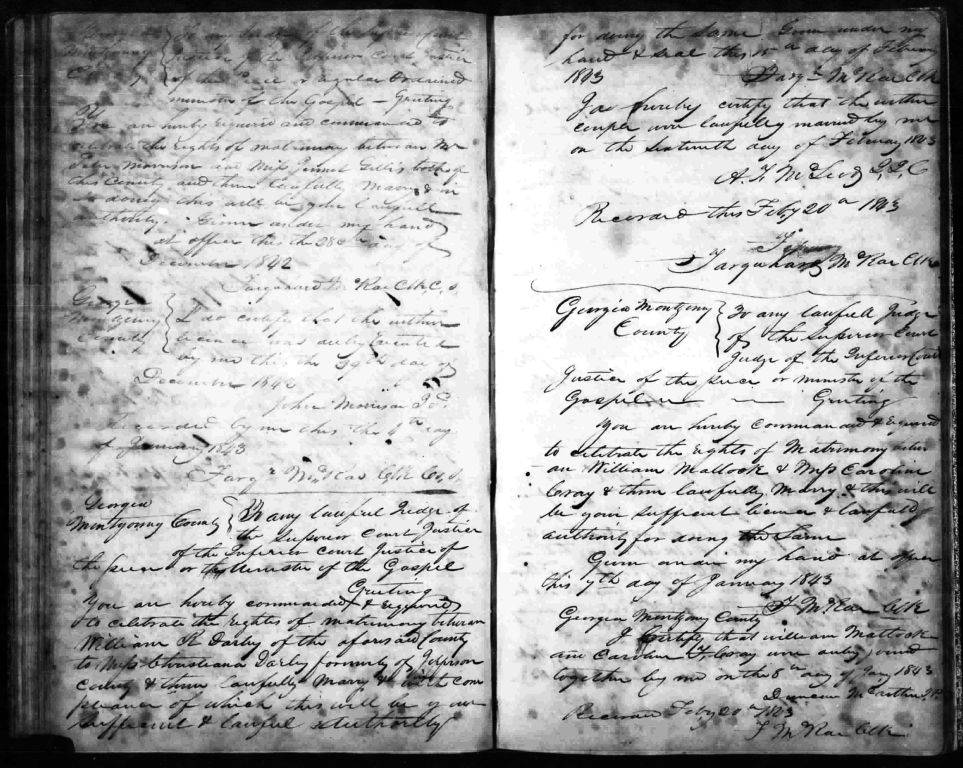 Georgia
Montgomery
County
To any Judge of the Superior
Justice of the Inferior Court Justice
of the Peace or regular Ordained
minister of the Gospel — Greting
You are hereby required and commanded to
celebrate the Rights of matrimony between Mr
Peter Morrison and Miss Jennet Gillis both of
this County and them lawfully Marry & in
so doing this will be your lawfull
authority Given under my hand
at office this the 28th day of
December 1842
Farquhard McRae Clk, C, O,
Georgia
Montgomery
County
I do certify that the within
licence was duly executed
by me this the 29th day of
December 1842
John Morrison J P
Recorded by me this the 4th day
of January 1843
Farqr McRae Clk
Georgia
Montgomery County
To any lawful Judge of
the Superior Court Justice
of the Inferior Court Justice of
the peace or the Minister of the Gospel
Greting
You are hereby commanded & required
to celebrate the Rights of matrimony between
William R Darley of the aforesaid County
to Miss Christiana Darley formerly of Jefferson
County & them lawfully Marry & with com
pliance of which this will be your
sufficient & lawful Authority
for doing the Same Given under my
hand & seal this 15th day of February
1843
Farqr McRae Clk
I do hereby certify that the within
couple were lawfully married by me
on the sixteenth day of February 1843
A. T. McLeod J, I, C
Recorded this Feby 20th 1843
Farquhard McRae Clk
Georgia Montgomy
County
To any lawfull Judge
of the Superior Court
Judge of the Inferior Court
Justice of the peace or minister of the
Gospel Greting
You are hereby Commanded & Required
to celebrate the Rights of Matrimony betw
een William Mattock & Miss Caroline
Cray & them lawfully Marry & this will
be your sufficent licence & lawfull
authority for doing the Same
Given under my hand at office
this 7th day of January 1843
F McRae Clk
Georgia Montgomy County
I Certify that william Mattock
and Caroline F. Cray were duly joined
together by me on the 8th day of Jany 1843
Duncan McArthur J P
Recorded Feby 20th 1843
F McRae Clk